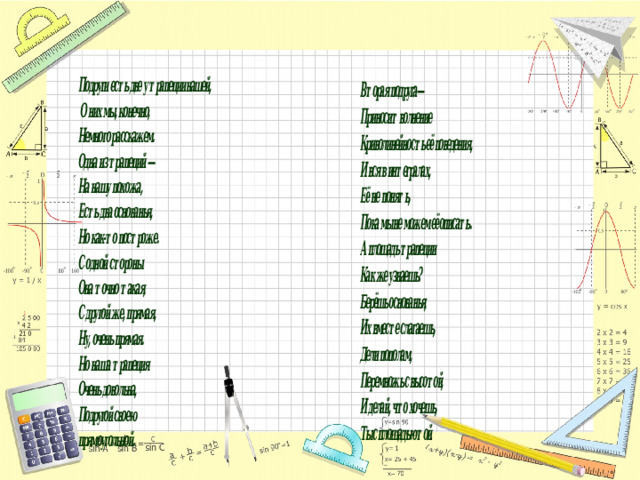 Подруги есть две у трапеции нашей,
О них мы, конечно,
Немного расскажем.
Одна из трапеций –
На нашу похожа,
Есть два основанья,
Но как-то построже.
С одной стороны
Она точно такая,
С другой же, прямая,
Ну, очень прямая.
Но наша трапеция
Очень довольна,
Подругой своею
прямоугольной.
Вторая подруга –
Приносит волнение
Криволинейность её поведения,
И вся в интегралах,
Её не понять,
Пока мы не можем её описать.
А площадь трапеции
Как же узнаешь?
Берёшь основанья,
Их вместе слагаешь,
Дели пополам,
Перемножь с высотой,
И делай, что хочешь,
Ты с площадью той
y = 1 / x
y = cos x
2 x 2 = 4
3 x 3 = 9
4 x 4 = 16
5 x 5 = 25
6 x 6 = 36
sin A sin B = c / sin C
a/c + b/c = a+b/c
sin 90° = 1
y = 1
x = 25 + 45
x = 70